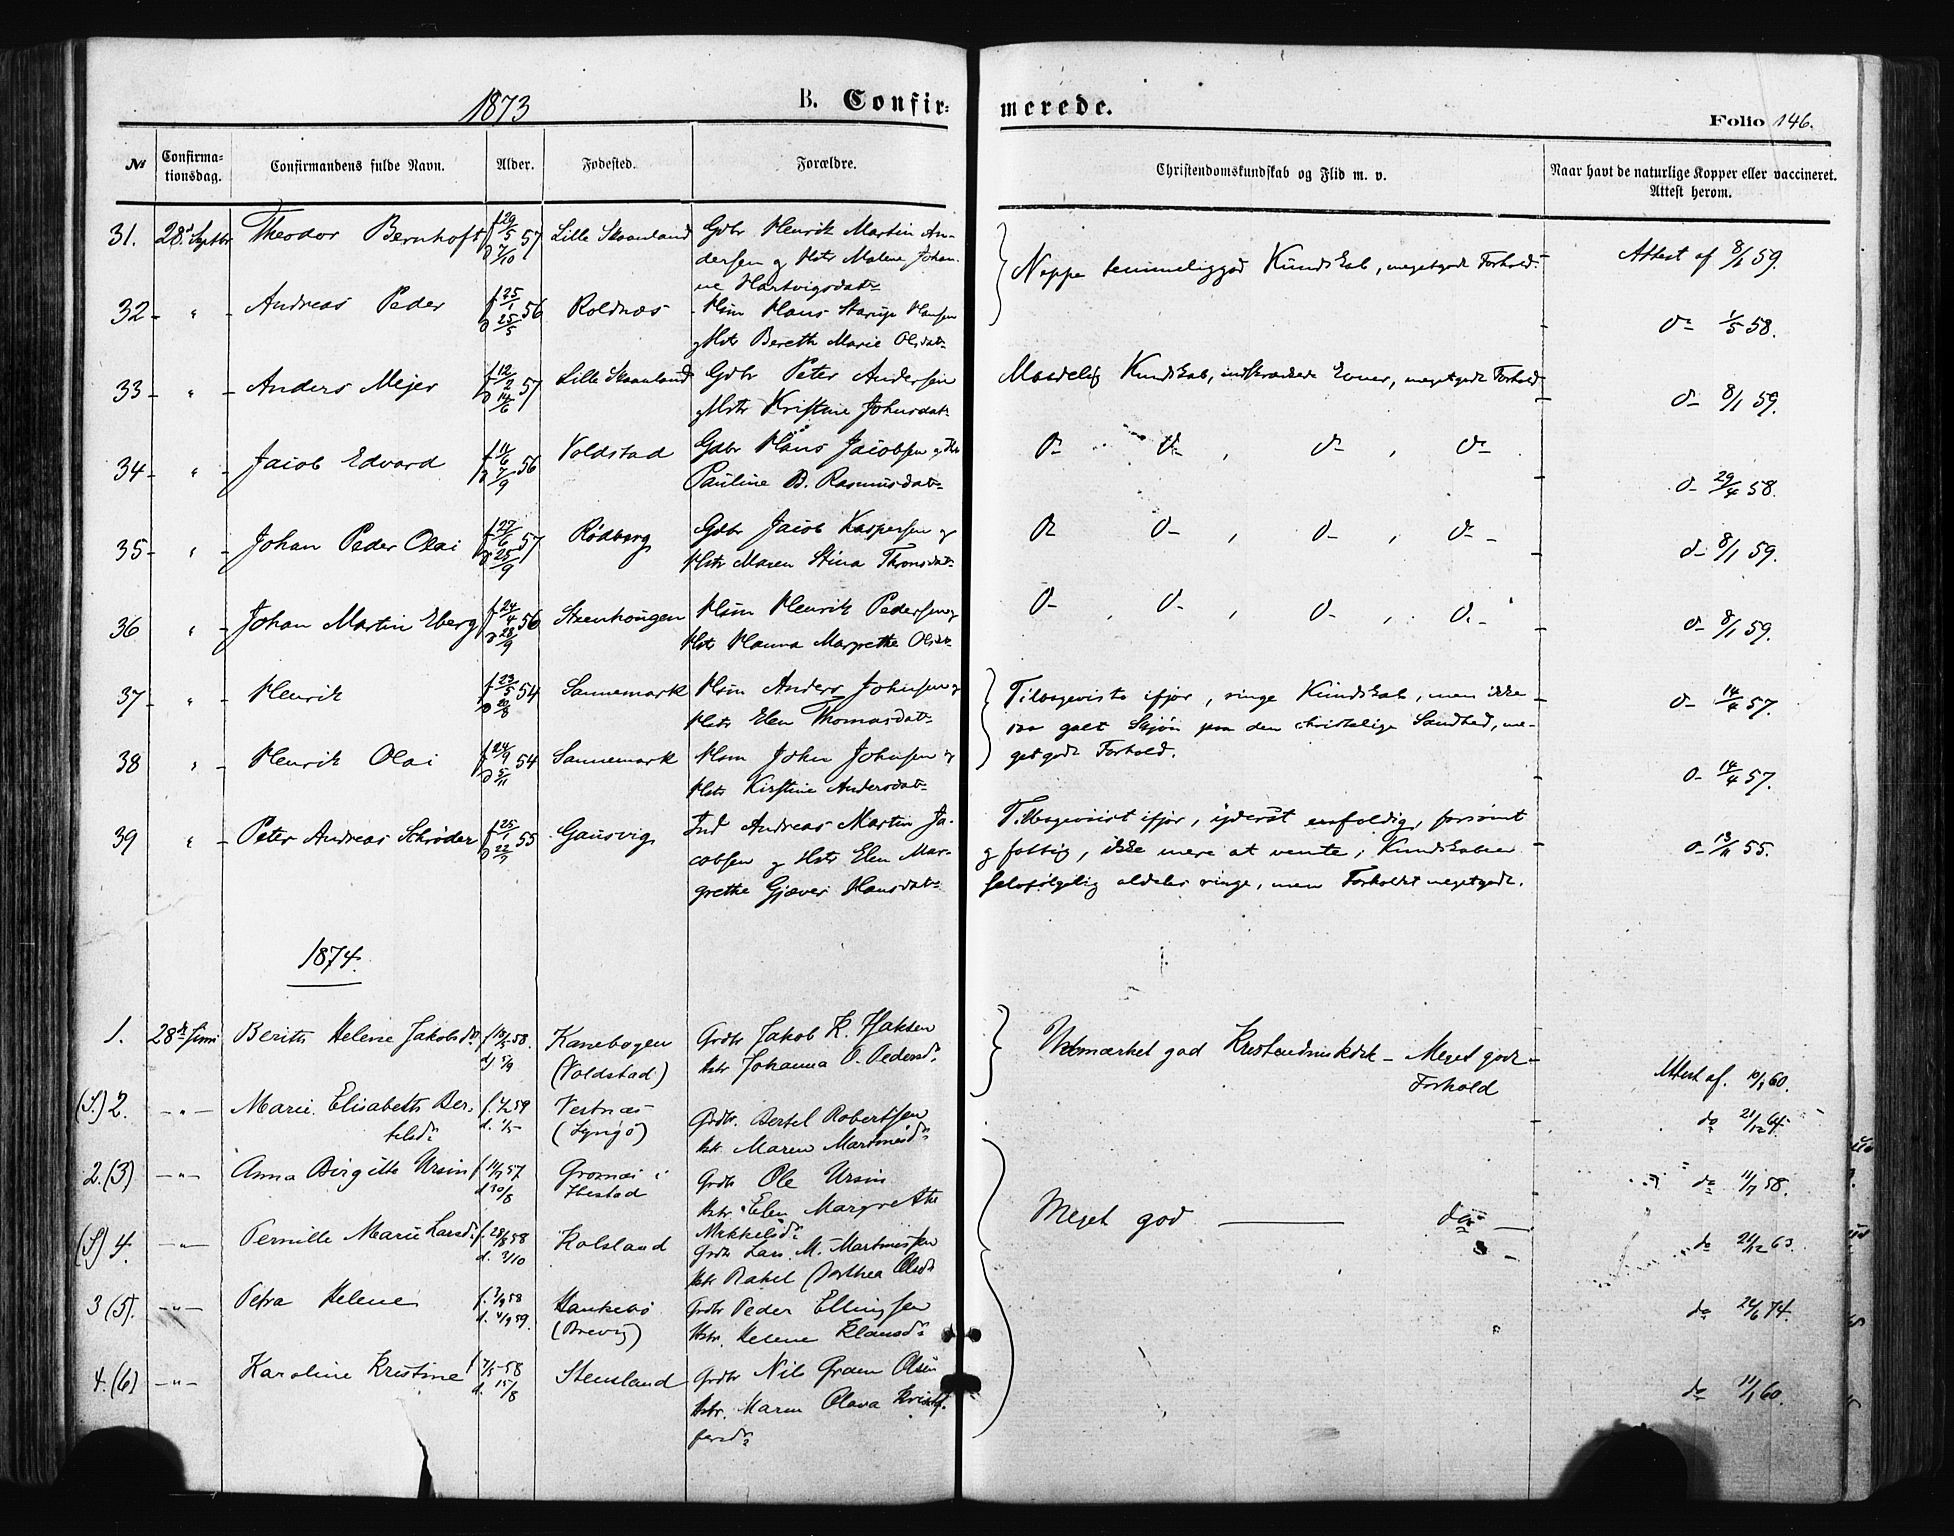 1873
B. Confir-
merede.
Folio 146.
No
Confirma-
tionsdag.
Confirmandens fulde Navn.
Alder.
Fødested.
Forældre.
Christendomskundskab og Flid m. v.
Naar havt de naturlige Kopper eller vaccineret.
Attest herom.
31. 28d Septbr Theodor Bernhoft f 29/5 57 D 7/10 Lille Skaanland Gdbr Henrik Martin An-
dersen og Hstr Malene Johan-
ne Hartvigsdatr
Neppe temmeliggod Kundskab, megetgodt Forhold.
Attest af 8/1 59.
32 - " - Andreas Peder f 25/1 56 D 25/5 Roldnæs Hsm Hans Starup Hansen
og Hstr Bereth Marie Olsdatr
Do 1/5 58.
33 - " - Anders Mejer f 12/2 57 D 14/6 Lille Skaanland Gdbr Peter Andersen
og Hstr Kristine Johnsdatr
Maadelig Kundskab, indskrænkede Evner, megetgodt Forhold
Do 8/1 59.
34 - " - Jacob Edvard f 11/6 56 D 7/9 Voldstad Gdbr Hans Jacobsen og Hstr
Pauline B. Rasmusdatr
Do Do, Do, Do
Do 29/4 58.
35 - " - Johan Peder Olai f 27/6 57 D 25/9 Rødberg Gdbr Jacob Kaspersen og
Hstr Maren Stina Thronsdatr
Do Do, Do, Do
Do 8/1 59.
36 " - Johan Martin Eberg f 24/4 56 D 28/9 Steenhougen Hsm Henrik Pedersen og
Hstr Hanna Margrethe Olsdatr
Do, Do, Do, Do
Do 8/1 59.
37 " - Henrik f 23/5 54 D 20/8 Sannemark Hsm Anders Johnsen og
Hstr Elen Thomasdatr
Tilbageviste ifjor, ringe Kundskab, men ikke
saa galt Skjøn paa den christelige Sandhed, me-
getgodt Forhold.
Do 14/4 57.
38 " - Henrik Olai f 24/9 54 D 5/11 Sannemark Hsm John Johnsen og
Hstr Kirstine Andersdatr
Do 14/4 57.
39 " - Peter Andreas Schrøder f 25/1 55 D 22/7 Gausvig Ind Andreas Martin Ja-
cobsen og Hstr Elen Mar-
grethe Gjæver Hansdatr
Tilbageviist ifjor, yderst eenfoldig, forsømt
og fattig, ikke mere at vente; Kundskaben
selvfølgelig aldeles ringe, men Forholdet megetgodt.
Do 13/11 55.
1874.
1. 28de Juni Berith Helene Jakobsdr. f 18/5 58. d 5/9 Kanebogen
(Voldstad)
Grdbr Jakob K. Isaksen
Hstr Johanna O. Pedersdr
Udmærket god Kristendmskdsk - Meget godt
Forhold
Attest af. 10/1 60.
(S.) 2. - " - Marie Elisabeth Ber-
telsdr
f. 4/2 59
Vestnæs
(Lyngø)
Grdbr. Bertel Robertsen
Hstr Maren Martinesdr
do 21/12 64.
2. (3) - " - Anna Birgitte Ursin f 14/7 57 d 30/8 Grovnæs i
Ibestad
Grdbr Ole Ursin
Hstr Elen Margrethe
Mikkelsdr
Meget god — do —
do 11/7 58.
(S) 4. - " - Pernille Marie Larsdr f. 28/8 58 d. 3/10 Kolsland
Grdbr Lars M. Martinessen
Hstr Rakel Dorthea Olsdr
do 21/12 63.
3 (5). - " - Petra Helene f. 3/9 58 d. 4/9 59. Haukebø
(Brevig)
Grdbr Peder Ellingsen
Hstr. Helene Klausdr
do 24/6 74.
4. (6) - " - Karoline Kristine f 7/5 58 d. 15/8 Stensland
Grdbr Nils Graen Olsen
Hstr. Maren Olava Kristof-
fersdr
do 11/1 60.